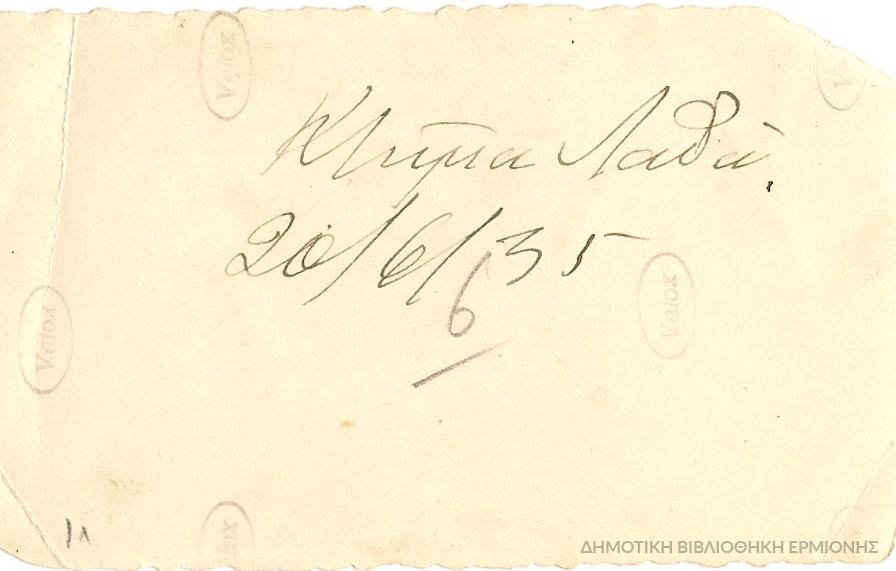 Velox
Velox
Κτήμα Λαδά.
20/6/35
6
Velox
Velox
Velox
ΔΗΜΟΤΙΚΗ ΒΙΒΛΙΟΘΗΚΗ ΕΡΜΙΟΝΗΣ